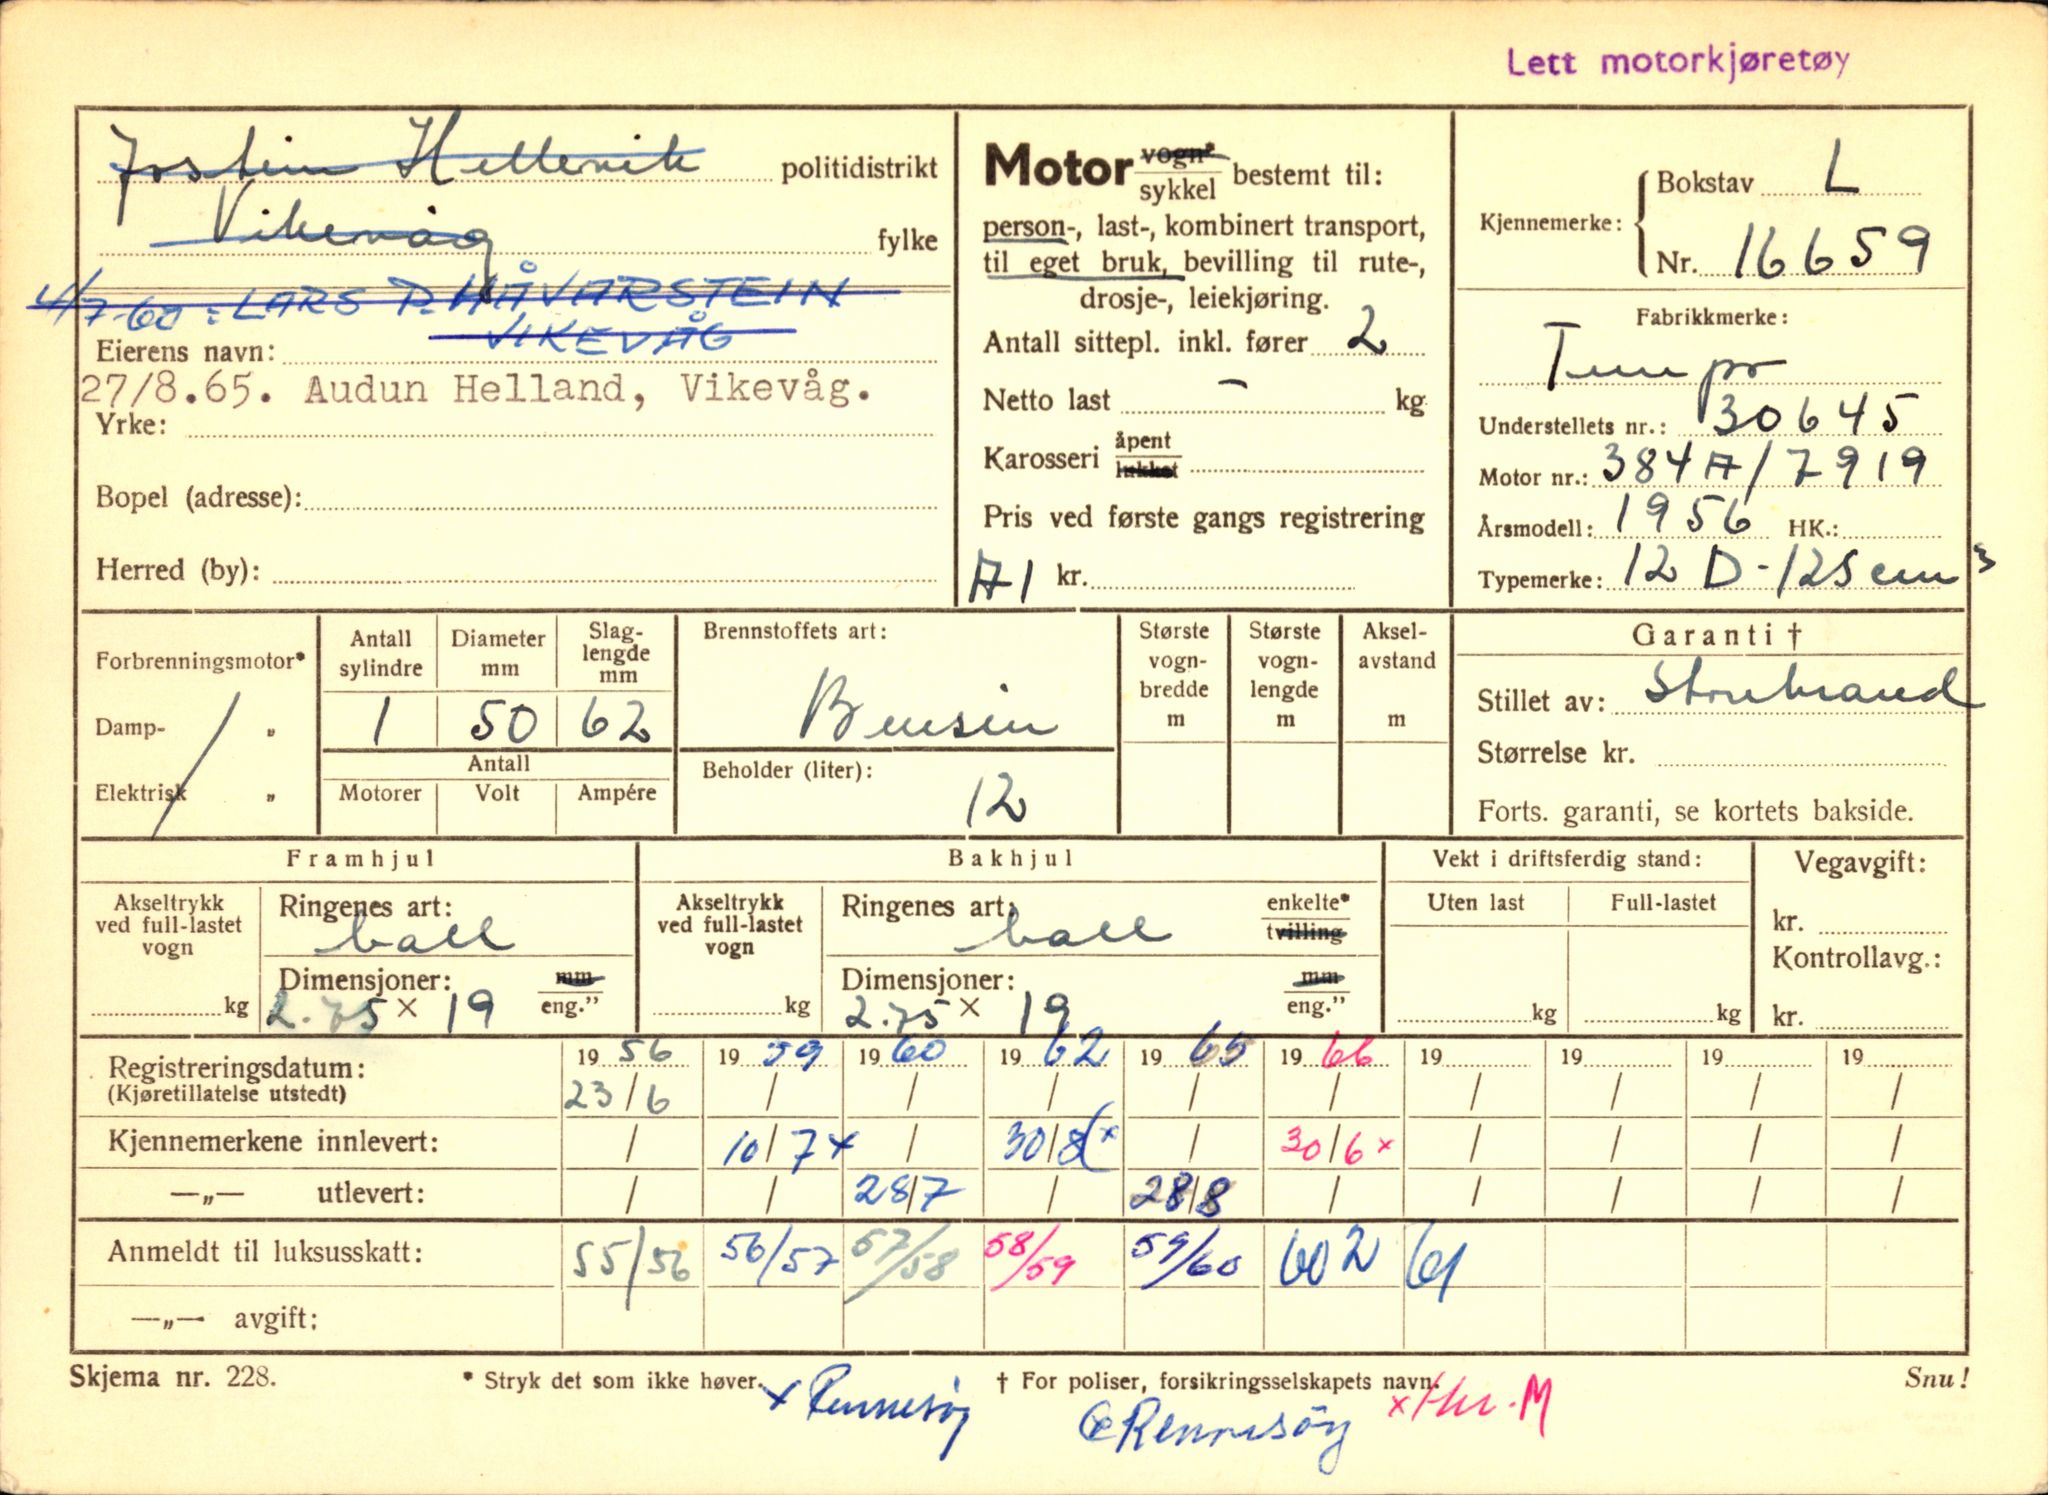 Lett motorkjøretøy
Jostein Hellevik politidistrikt
Vikevåg fylke
4/7-60: LARS P. HÅVARSTEIN
VIKEVÅG
Eierens navn:
27/8.65. Audun Helland, Vikevåg.
Yrke:
Bopel (adresse):
Herred (by):
Motor vogn* sykkel bestemt til:
person-, last-, kombinert transport,
til eget bruk, bevilling til rute-,
drosje-, leiekjøring.
Antall sittepl. inkl. fører 2
Netto last - kg
Karosseri åpent lukket
Pris ved første gangs registrering
A1 kr.
Kjennemerke: Bokstav L
Nr. 16659
Fabrikkmerke:
Tempo
Understellets nr.: 30645
Motor nr.: 384A/7919
Årsmodell: 1956 HK.:
Typemerke: 12 D-125 cm³
Forbrenningsmotor*
Damp- „
Elektrisk „
Antall sylindre Diameter mm Slag-lengde mm
1 50 62
Antall
Motorer Volt Ampére
Brennstoffets art:
Bensin
Beholder (liter):
12
Største vogn-bredde m
Største vogn-lengde m
Aksel-avstand m
Garanti †
Stillet av: Storebrand
Størrelse kr.
Forts. garanti, se kortets bakside.
Framhjul
Akseltrykk ved full-lastet vogn
kg
Ringenes art:
ball
Dimensjoner: mm
2.75 x 19 eng.”
Bakhjul
Akseltrykk ved full-lastet vogn
kg
Ringenes art: enkelte*
ball tvilling
Dimensjoner: mm
2.75 x 19 eng.”
Vekt i driftsferdig stand:
Uten last Full-lastet
kg kg
Vegavgift:
kr.
Kontrollavg.:
kr.
Registreringsdatum: 1956 1959 1960 1962 1965 1966 19 19 19 19
(Kjøretillatelse utstedt) 23/6 / / / / / / / / /
Kjennemerkene innlevert: / 10/7 x / 30/8 x / 30/6 x / / / /
—„— utlevert: / / 28/7 / 28/8 / / / / /
Anmeldt til luksusskatt: 55/56 56/57 57/58 58/59 59/60 602 61
—„— avgift:
Skjema nr. 228.
* Stryk det som ikke høver.
† For poliser, forsikringsselskapets navn.
Snu!
x Rennesøy
Rennesøy